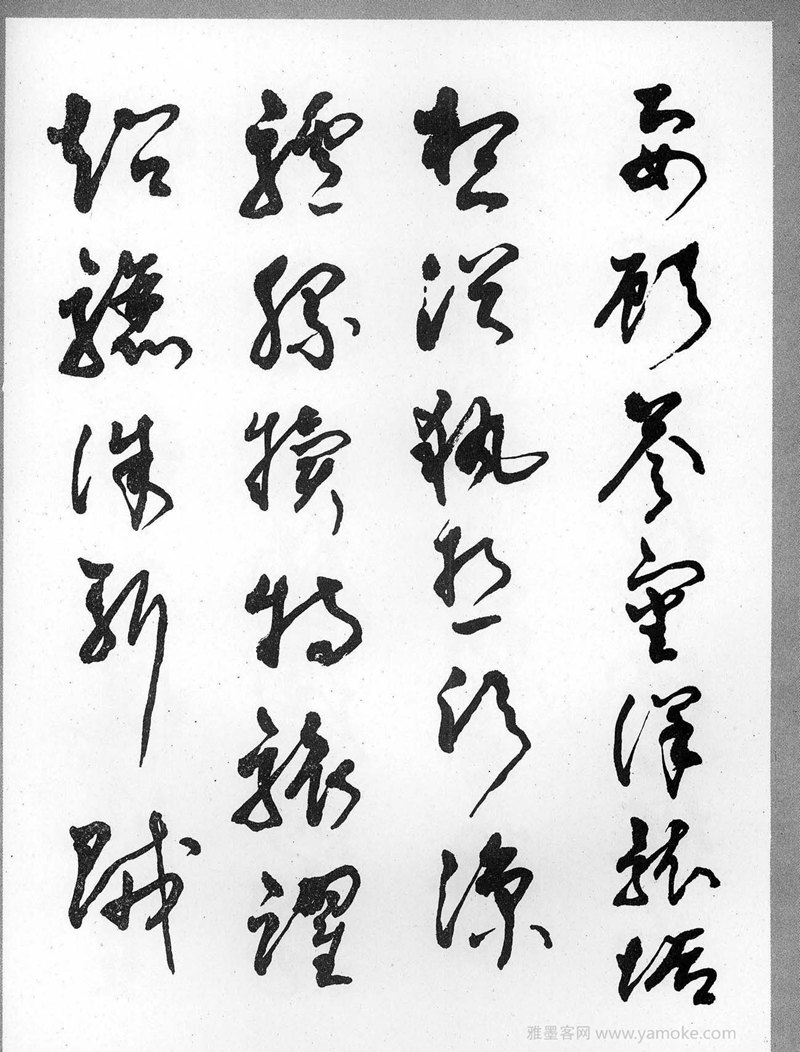 要顧答審詳骸垢
想浴執熱願涼
驢騾犢特駭躍
超驤誅斬賊
雅墨客网 www.yamoke.com